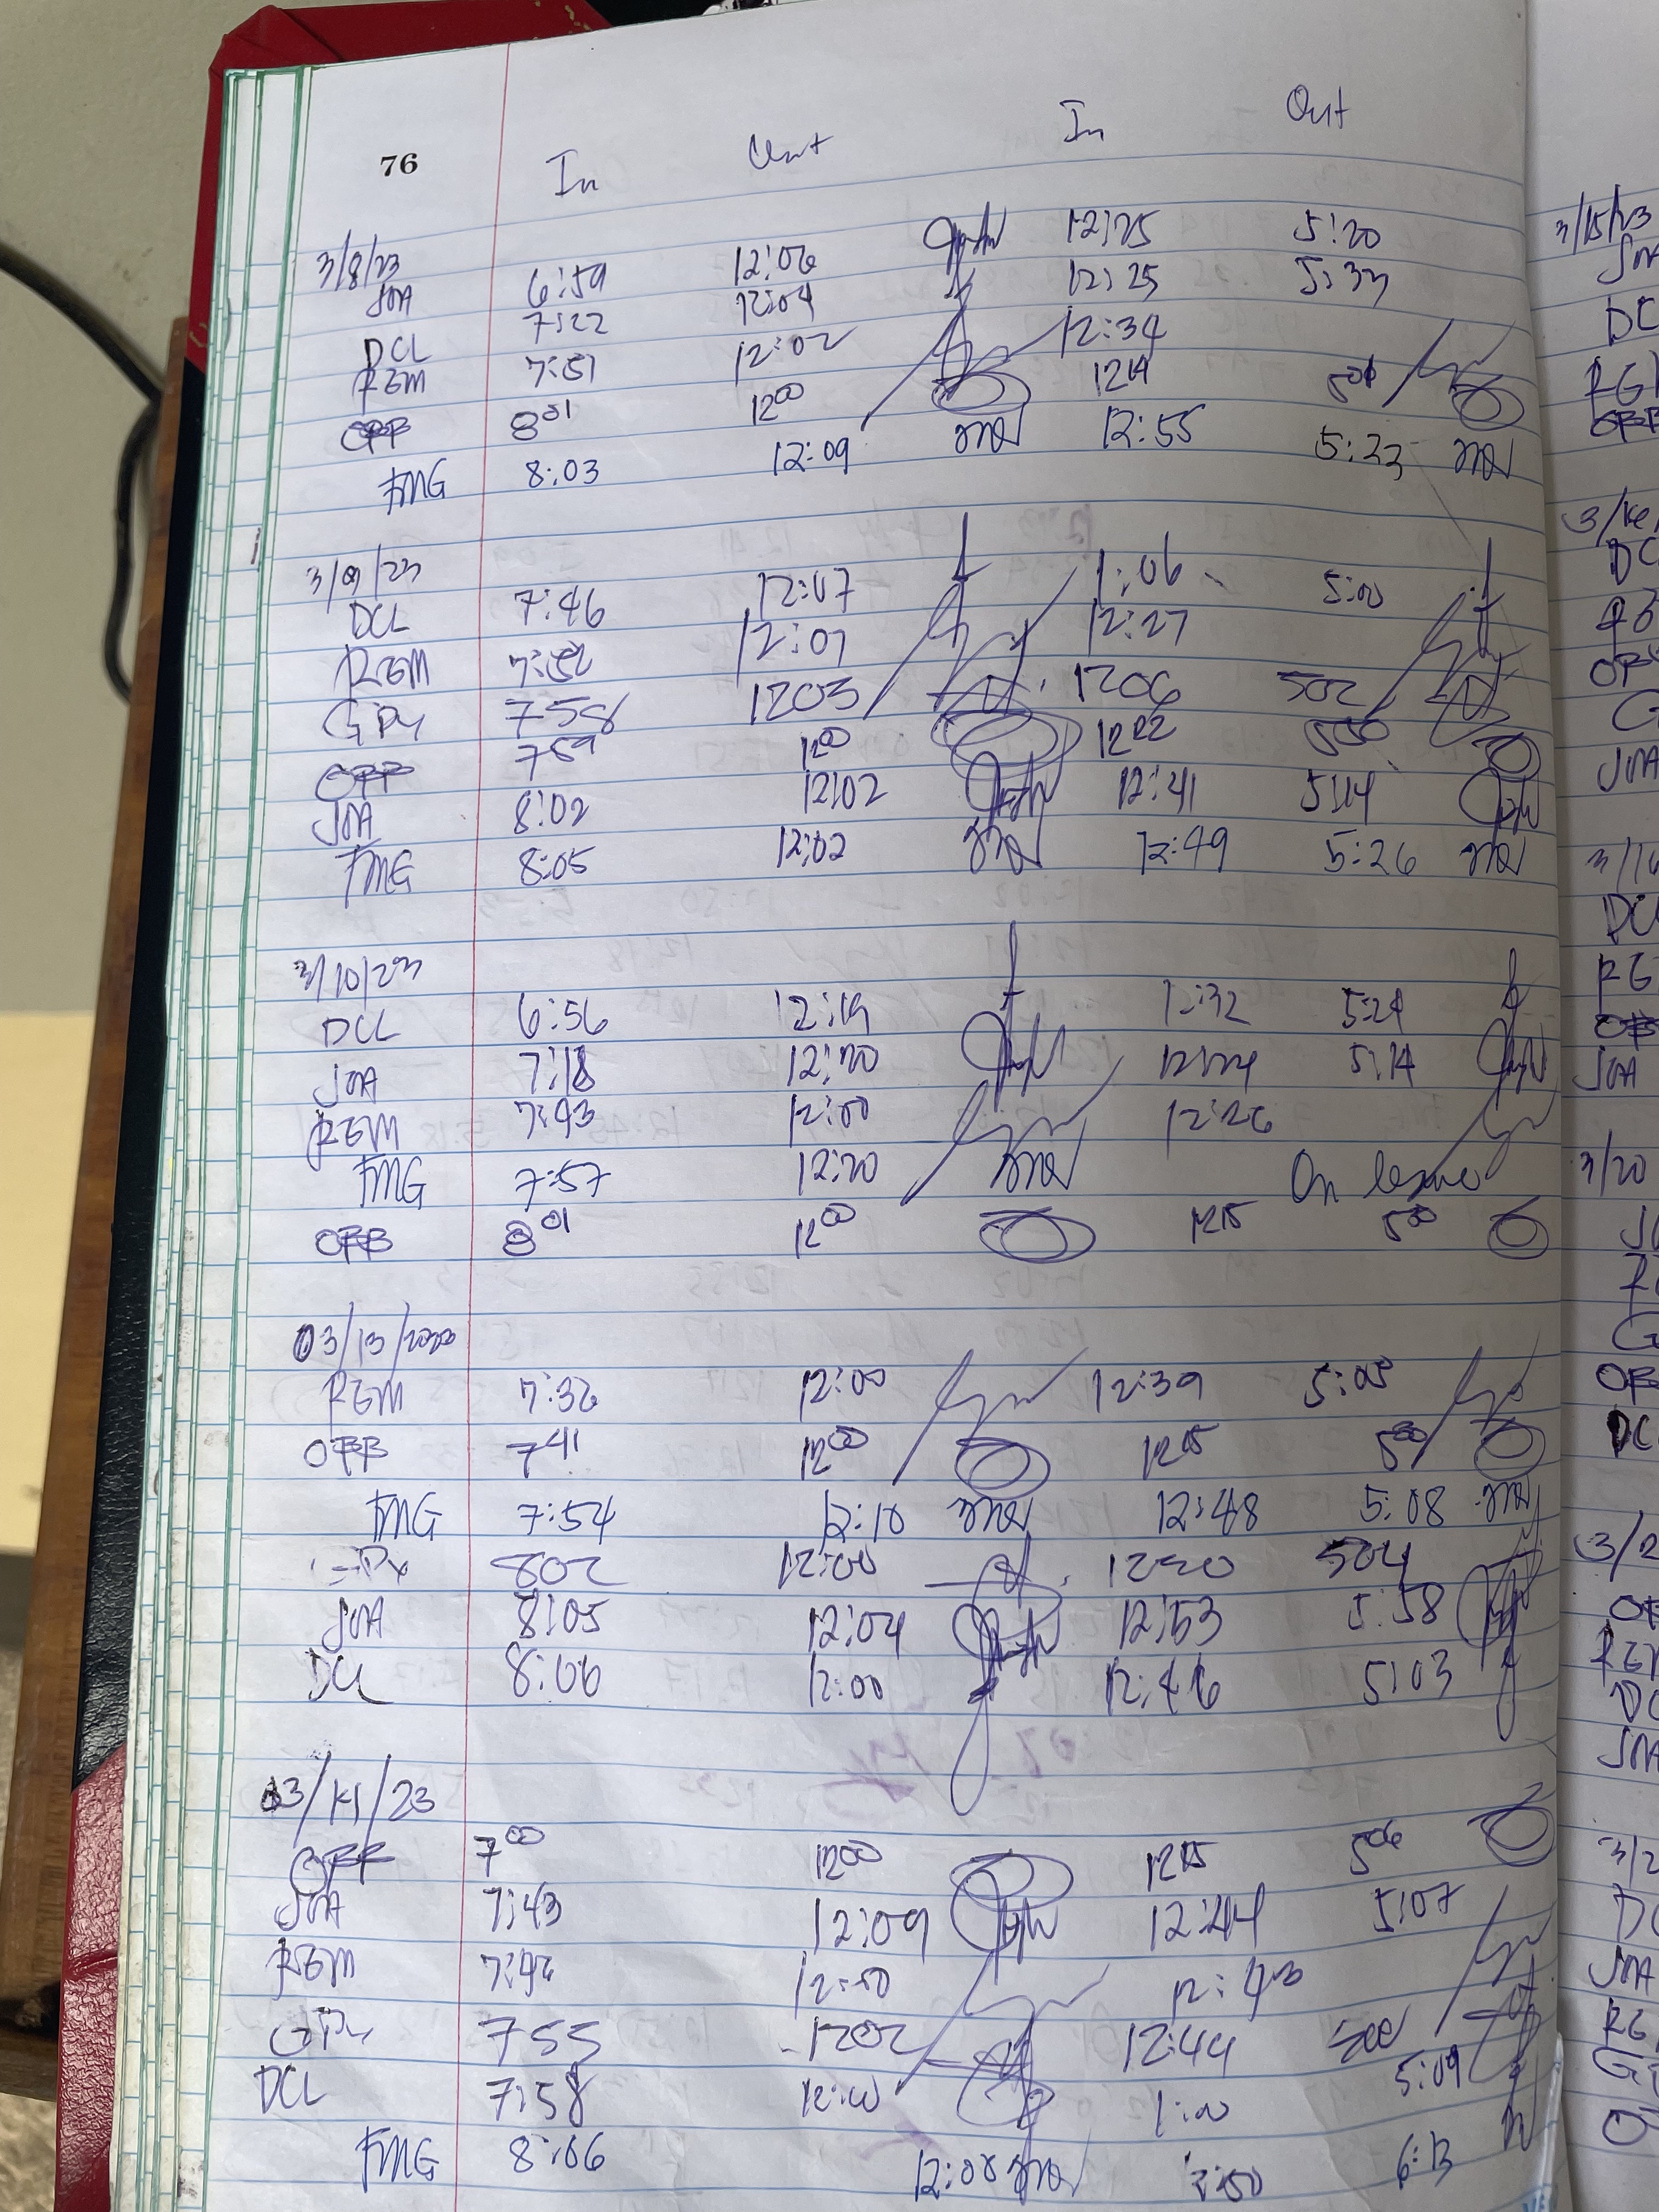 76 In Out In Out
3/8/23
JOA 6:59 12:06 12:25 5:20
DCL 7:22 12:04 12:25 5:33
REM 7:51 12:02 12:34
OFB 8 01 12 00 12 5 01
FMG 8:03 12:09 12:55 5:23
3/9/23
DCL 7:46 12:07 1:06 5:00
REM 7:52 12:01 12:27
GPy 758 1203 1206 502
OFB 7 59 12 00 12 02 5 00
JOA 8:02 12:02 12:41 5:14
FMG 8:05 12:02 12:49 5:26
3/10/23
DCL 6:56 12:19 12:32 5:24
JOA 7:18 12:20 12:24 5:14
REM 7:43 12:00 12:26
FMG 7:57 12:20 On leave
OFB 8 01 12 00 12 15 5 00
03/13/2023
REM 7:32 12:00 12:39 5:05
OFB 7 41 12 00 12 05 5 00
FMG 7:54 12:10 12:48 5:08
802 12:00 1230 504
JOA 8:05 12:04 12:53 5:58
DCL 8:06 12:00 12:46 5:03
03/14/23
OFB 7 00 12 00 12 15 5 06
JOA 7:43 12:09 12:44 5:07
REM 7:42 12:00 12:43
GPy 755 1202 12:44 500
DCL 7:58 12:00 1:00 5:09
FMG 8:06 12:08 6:13
3/15/23
JOA
DC
3/16
DC
OF
G
JOA
3/16
DC
RE
OB
JOA
3/20
JO
RE
G
OF
DC
3/2
OF
REM
DC
JOA
3/2
DC
JOA
RE
G
O